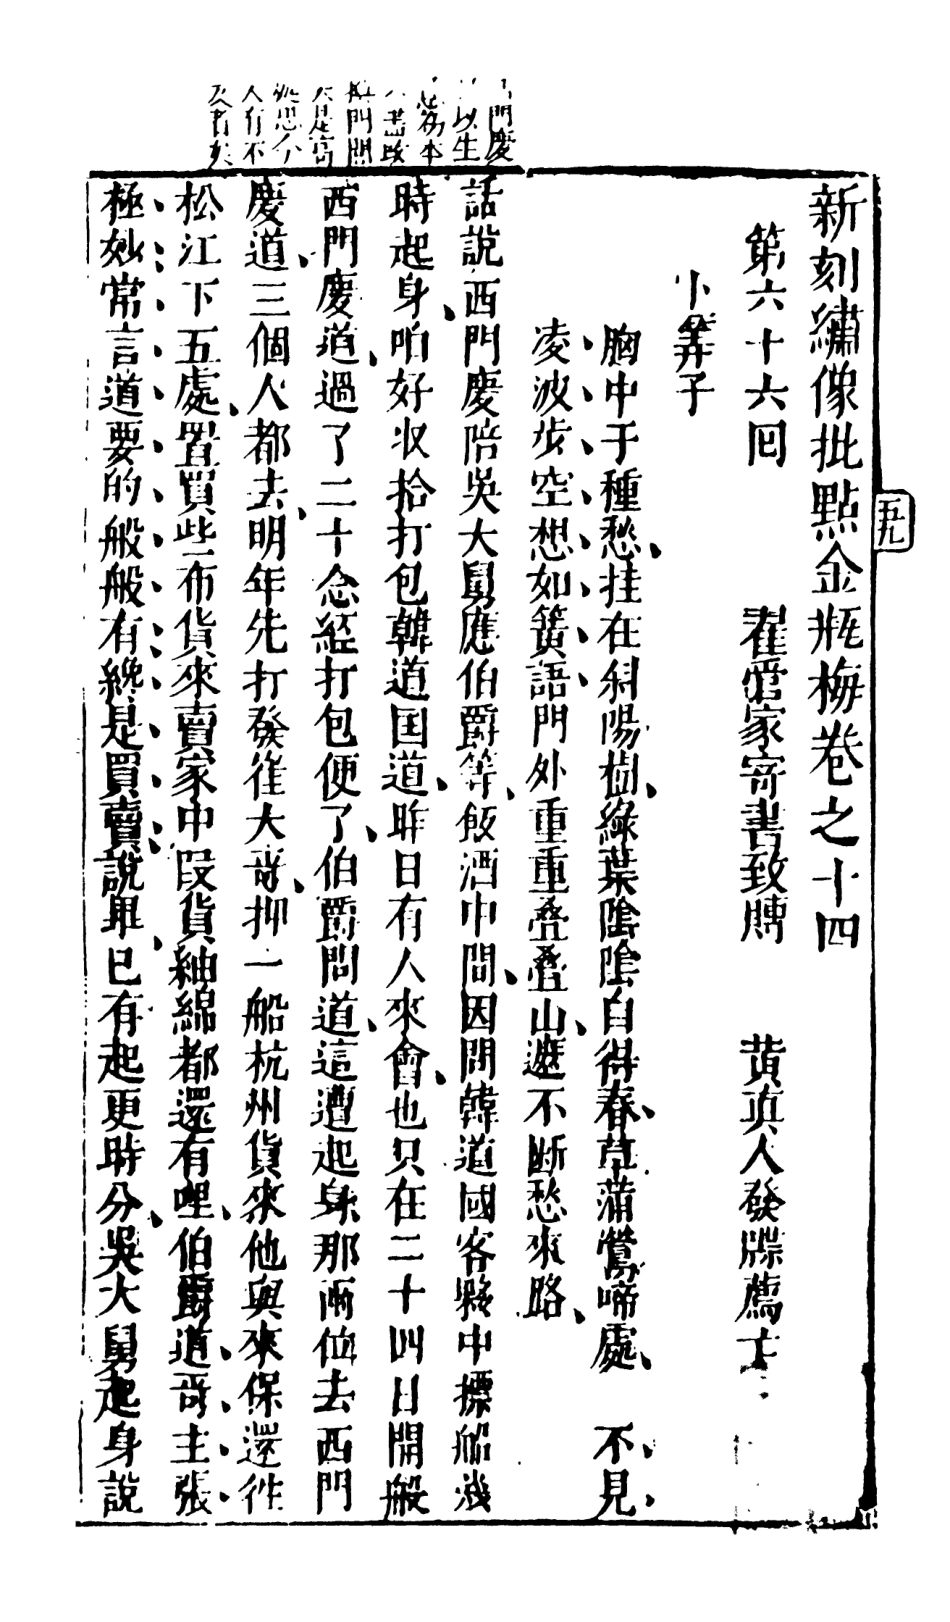 新刻繡像批點金瓶梅卷之十四
第六十六回　翟管家寄書致賻　黃真人發牒薦亡
卜筭子
胸中千種愁挂在斜陽樹綠葉陰陰自得春草蒲鶯啼處　不見
凌波步空想如簧語門外重重叠叠山遮不斷愁來路
話說西門慶陪吳大舅應伯爵等飯酒中間因問韓道國客夥中摽船幾
時起身咱好収拾打包韓道国道昨日有人來會也只在二十四日開船
西門慶道過了二十念經打包便了伯爵問道這遭起身那兩位去西門
慶道三個人都去明年先打發崔大哥押一船杭州貨來他與來保還徃
松江下五處置買些布貨來賣家中段貨紬綿都還有哩伯爵道哥主張
極妙常言道要的般般有纔是買賣說畢已有起更時分吳大舅起身說
門慶
以生
為本
門開
人有不
五九